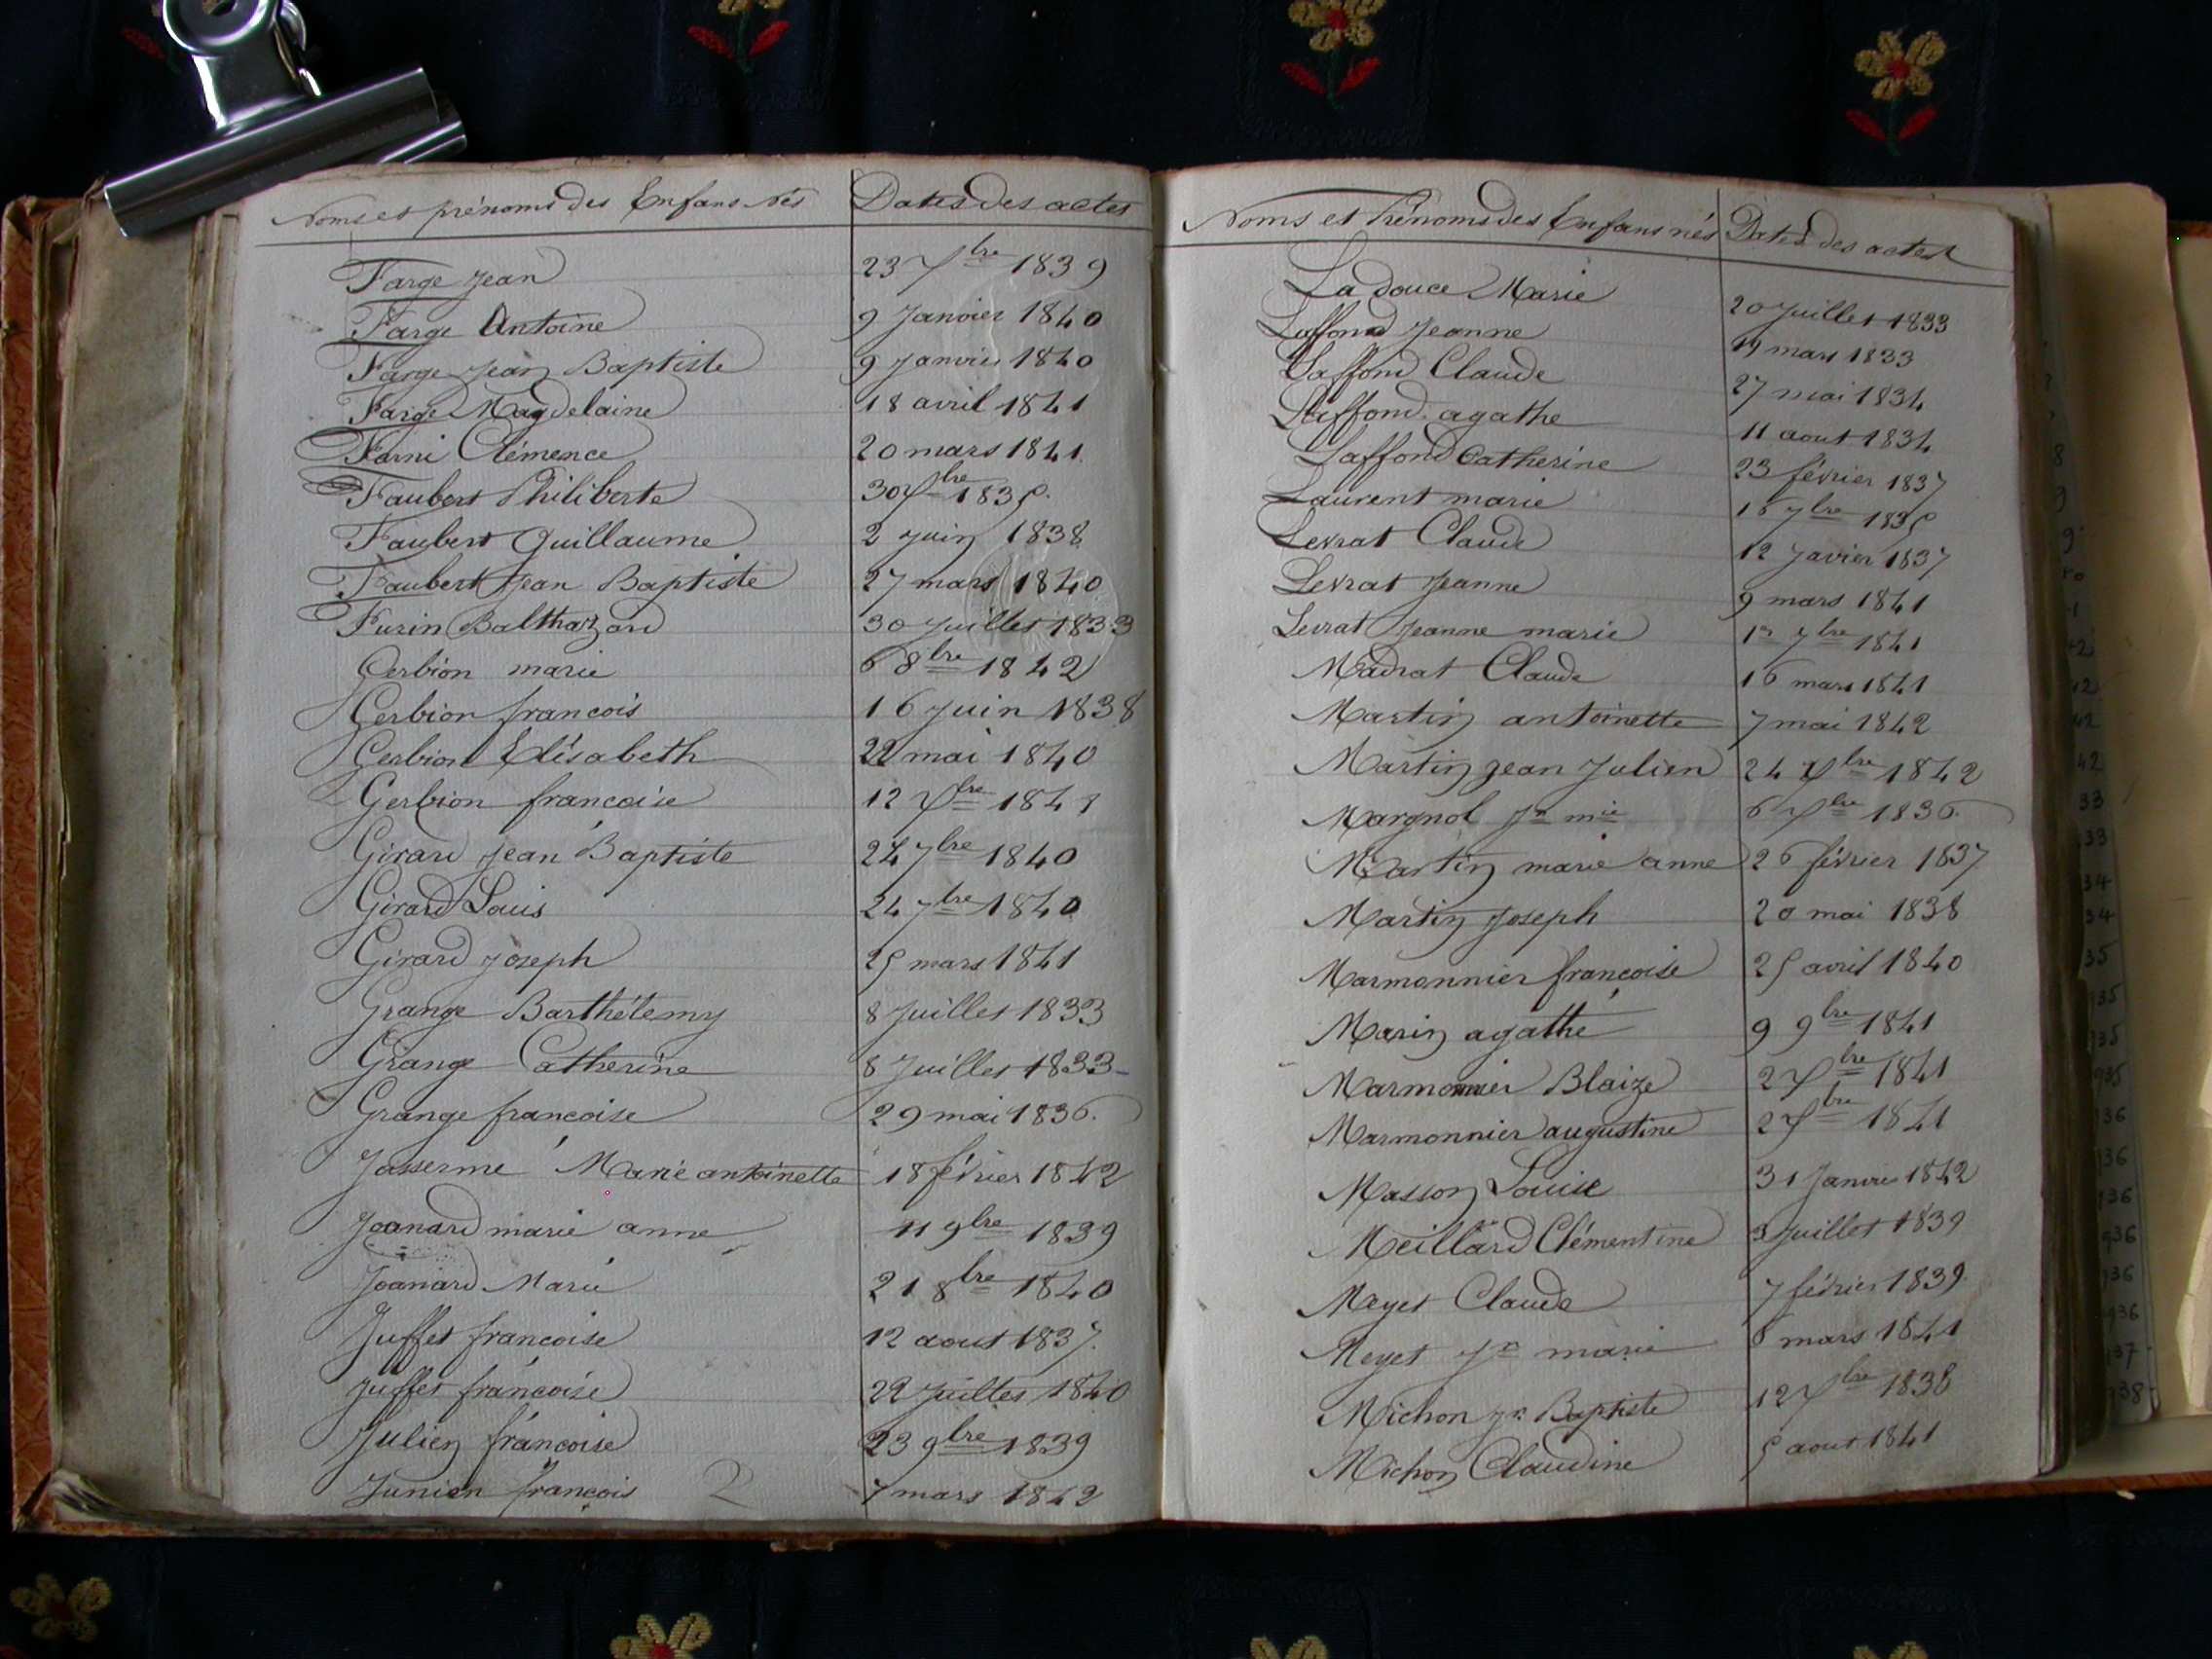 Noms et prénoms des Enfans nés Dates des actes
Farge Jean 23 Xbre 1839
Farge Antoine 9 Janvier 1840
Farge Jean Baptiste 9 Janvier 1840
Farge Magdelaine 18 avril 1841
Farni Clémence 20 mars 1841
Faubert Philiberte 30 Xbre 1835
Faubert Guillaume 2 Juin 1838
Faubert Jean Baptiste 27 mars 1840
Furin Balthazard 30 Juillet 1833
Gerbion marie 6 8bre 1842
Gerbion francois 16 Juin 1838
Gerbion Elésabeth 22 mai 1840
Gerbion francoise 12 Xbre 1841
Girard Jean Baptiste 24 7bre 1840
Girard Louis 24 7bre 1840
Girard Joseph 25 mars 1841
Grange Barthélemy 8 Juillet 1833
Grange Catherine 8 Juillet 1833
Grange francoise 29 mai 1836
Jasserme Marie antoinette 18 février 1842
Joanard marie anne 11 9bre 1839
Joanard Marie 21 8bre 1840
Juffet francoise 12 aout 1837
Juffet francoise 22 Juillet 1840
Julien françoise 23 9bre 1839
Junien françois 2 7 mars 1842
Noms et Prénoms des Enfans nés Dates des actes
Ladouce Marie 20 Juillet 1833
Laffond Jeanne 19 mars 1833
Laffond Claude 27 mai 1834
Laffond agathe 11 aout 1834
Laffond Catherine 23 février 1837
Laurent marie 16 7bre 1835
Levrat Claude 12 Javier 1837
Levrat Jeanne 9 mars 1841
Levrat Jeanne marie 1er 7bre 1841
Madrat Claude 16 mars 1841
Martin antoinette 7 mai 1842
Martin jean Julien 24 Xbre 1842
Margnol Jn mie 6 Xbre 1836
Martin marie anne 26 février 1837
Martin Joseph 20 mai 1838
Marmonnier françoise 25 avril 1840
Marin agathe 9 9bre 1841
Marmonnier Blaize 2 Xbre 1841
Marmonnier augustine 2 Xbre 1841
Masson Louise 31 Janvier 1842
Meillard Clémentine 3 Juillet 1839
Meyet Claude 7 février 1839
Meyet Jn marie 8 mars 1841
Michon Jn Baptiste 12 Xbre 1838
Michon Claudine 5 aout 1841